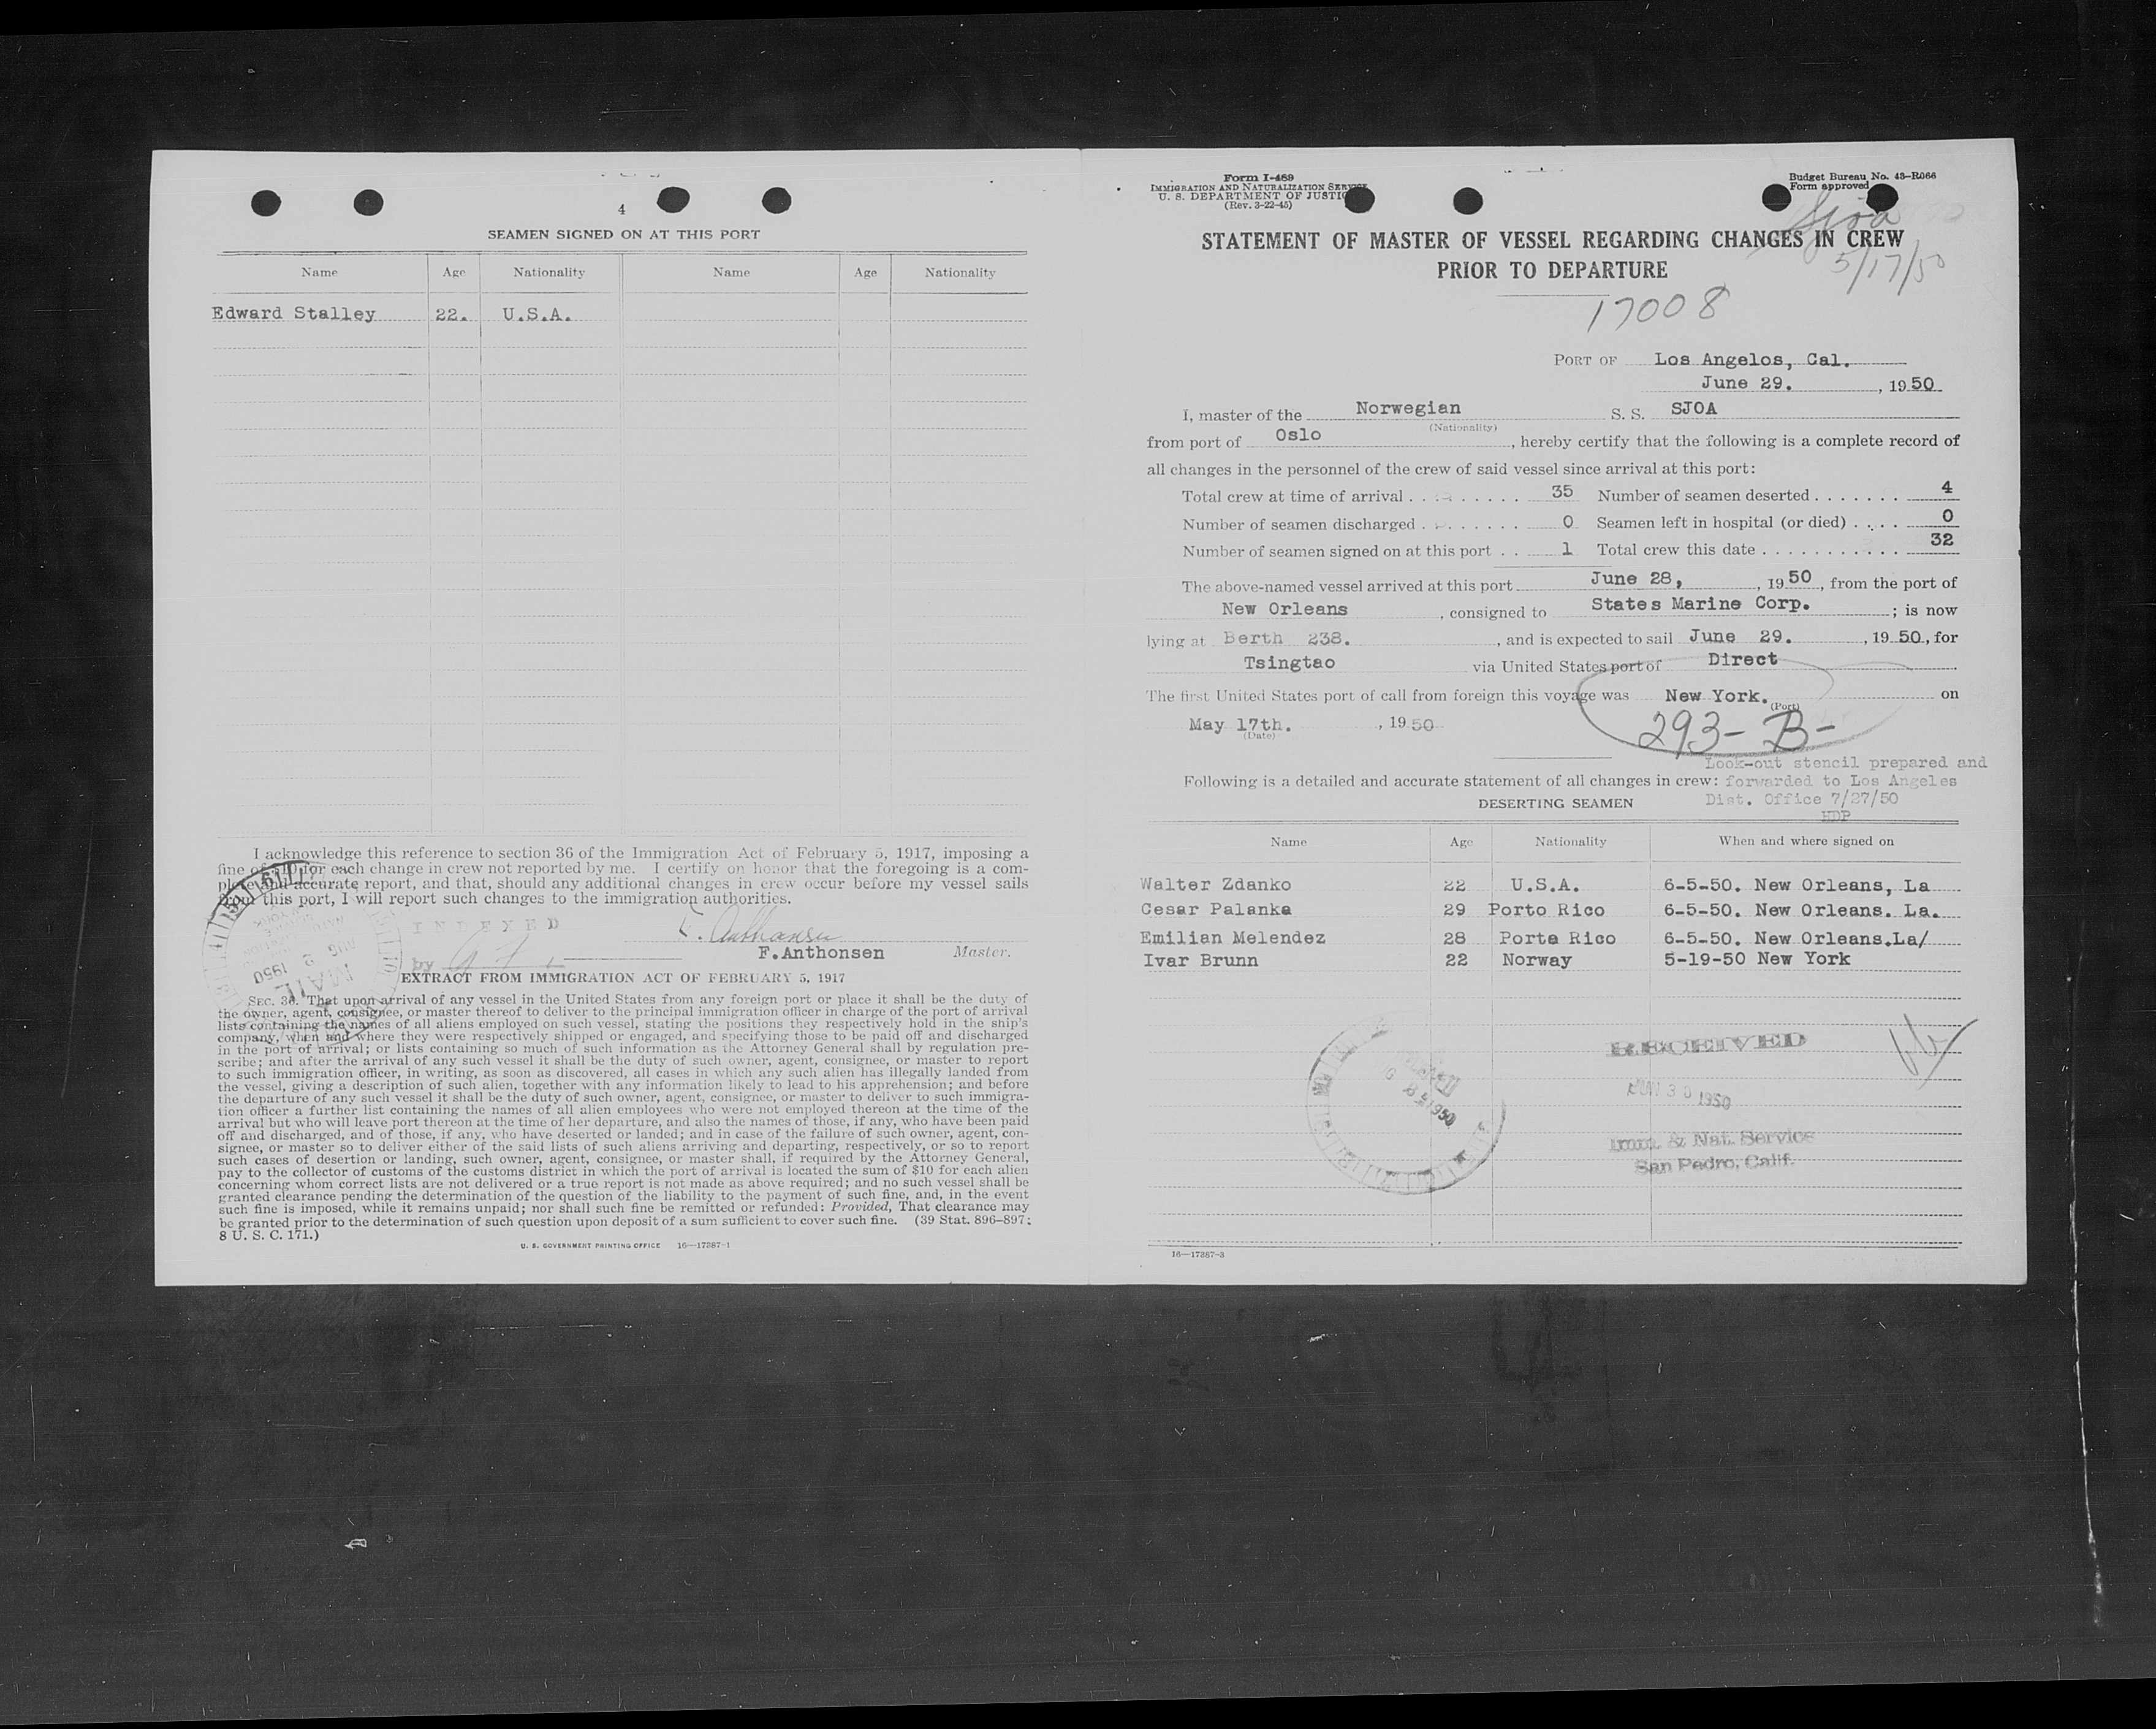 4
SEAMEN SIGNED ON AT THIS PORT
Name Age Nationality Name Age Nationality
Edward Stalley 22. U.S.A.
I acknowledge this reference to section 36 of the Immigration Act of February 5, 1917, imposing a
fine of $10 for each change in crew not reported by me. I certify on honor that the foregoing is a com-
plete and accurate report, and that, should any additional changes in crew occur before my vessel sails
from this port, I will report such changes to the immigration authorities.
INDEXED
by
F. Anthonsen
F.Anthonsen Master.
MAIL
AUG 2 1950
EXTRACT FROM IMMIGRATION ACT OF FEBRUARY 5, 1917
SEC. 36. That upon arrival of any vessel in the United States from any foreign port or place it shall be the duty of
the owner, agent, consignee, or master thereof to deliver to the principal immigration officer in charge of the port of arrival
lists containing the names of all aliens employed on such vessel, stating the positions they respectively hold in the ship's
company, when and where they were respectively shipped or engaged, and specifying those to be paid off and discharged
in the port of arrival; or lists containing so much of such information as the Attorney General shall by regulation pre-
scribe; and after the arrival of any such vessel it shall be the duty of such owner, agent, consignee, or master to report
to such immigration officer, in writing, as soon as discovered, all cases in which any such alien has illegally landed from
the vessel, giving a description of such alien, together with any information likely to lead to his apprehension; and before
the departure of any such vessel it shall be the duty of such owner, agent, consignee, or master to deliver to such immigra-
tion officer a further list containing the names of all alien employees who were not employed thereon at the time of the
arrival but who will leave port thereon at the time of her departure, and also the names of those, if any, who have been paid
off and discharged, and of those, if any, who have deserted or landed; and in case of the failure of such owner, agent, con-
signee, or master so to deliver either of the said lists of such aliens arriving and departing, respectively, or so to report
such cases of desertion or landing, such owner, agent, consignee, or master shall, if required by the Attorney General,
pay to the collector of customs of the customs district in which the port of arrival is located the sum of $10 for each alien
concerning whom correct lists are not delivered or a true report is not made as above required; and no such vessel shall be
granted clearance pending the determination of the question of the liability to the payment of such fine, and, in the event
such fine is imposed, while it remains unpaid; nor shall such fine be remitted or refunded: Provided, That clearance may
be granted prior to the determination of such question upon deposit of a sum sufficient to cover such fine. (39 Stat. 896-897;
8 U. S. C. 171.)
U. S. GOVERNMENT PRINTING OFFICE 16—17387-1
Form I-489
IMMIGRATION AND NATURALIZATION SERVICE
U. S. DEPARTMENT OF JUSTICE
(Rev. 3-22-45)
Budget Bureau No. 43-R066
Form approved
Sjoa
5/17/50
STATEMENT OF MASTER OF VESSEL REGARDING CHANGES IN CREW
PRIOR TO DEPARTURE
17008
PORT OF Los Angelos, Cal.
June 29. , 1950
I, master of the Norwegian S. S. SJOA
(Nationality)
from port of Oslo , hereby certify that the following is a complete record of
all changes in the personnel of the crew of said vessel since arrival at this port:
Total crew at time of arrival 35 Number of seamen deserted 4
Number of seamen discharged 0 Seamen left in hospital (or died) 0
Number of seamen signed on at this port 1 Total crew this date 32
The above-named vessel arrived at this port June 28, , 1950, from the port of
New Orleans , consigned to States Marine Corp. ; is now
lying at Berth 238. , and is expected to sail June 29. , 1950, for
Tsingtao via United States port of Direct
The first United States port of call from foreign this voyage was New York. on
(Port)
May 17th. , 1950
(Date)
293-B-
Look-out stencil prepared and
Following is a detailed and accurate statement of all changes in crew: forwarded to Los Angeles
DESERTING SEAMEN Dist. Office 7/27/50
HDP
Name Age Nationality When and where signed on
Walter Zdanko 22 U.S.A. 6-5-50. New Orleans, La
Cesar Palanka 29 Porto Rico 6-5-50. New Orleans. La.
Emilian Melendez 28 Porte Rico 6-5-50. New Orleans.La/
Ivar Brunn 22 Norway 5-19-50 New York
RECEIVED
JUN 30 1950
Imm. & Nat. Service
San Pedro, Calif.
1950
16—17387-3